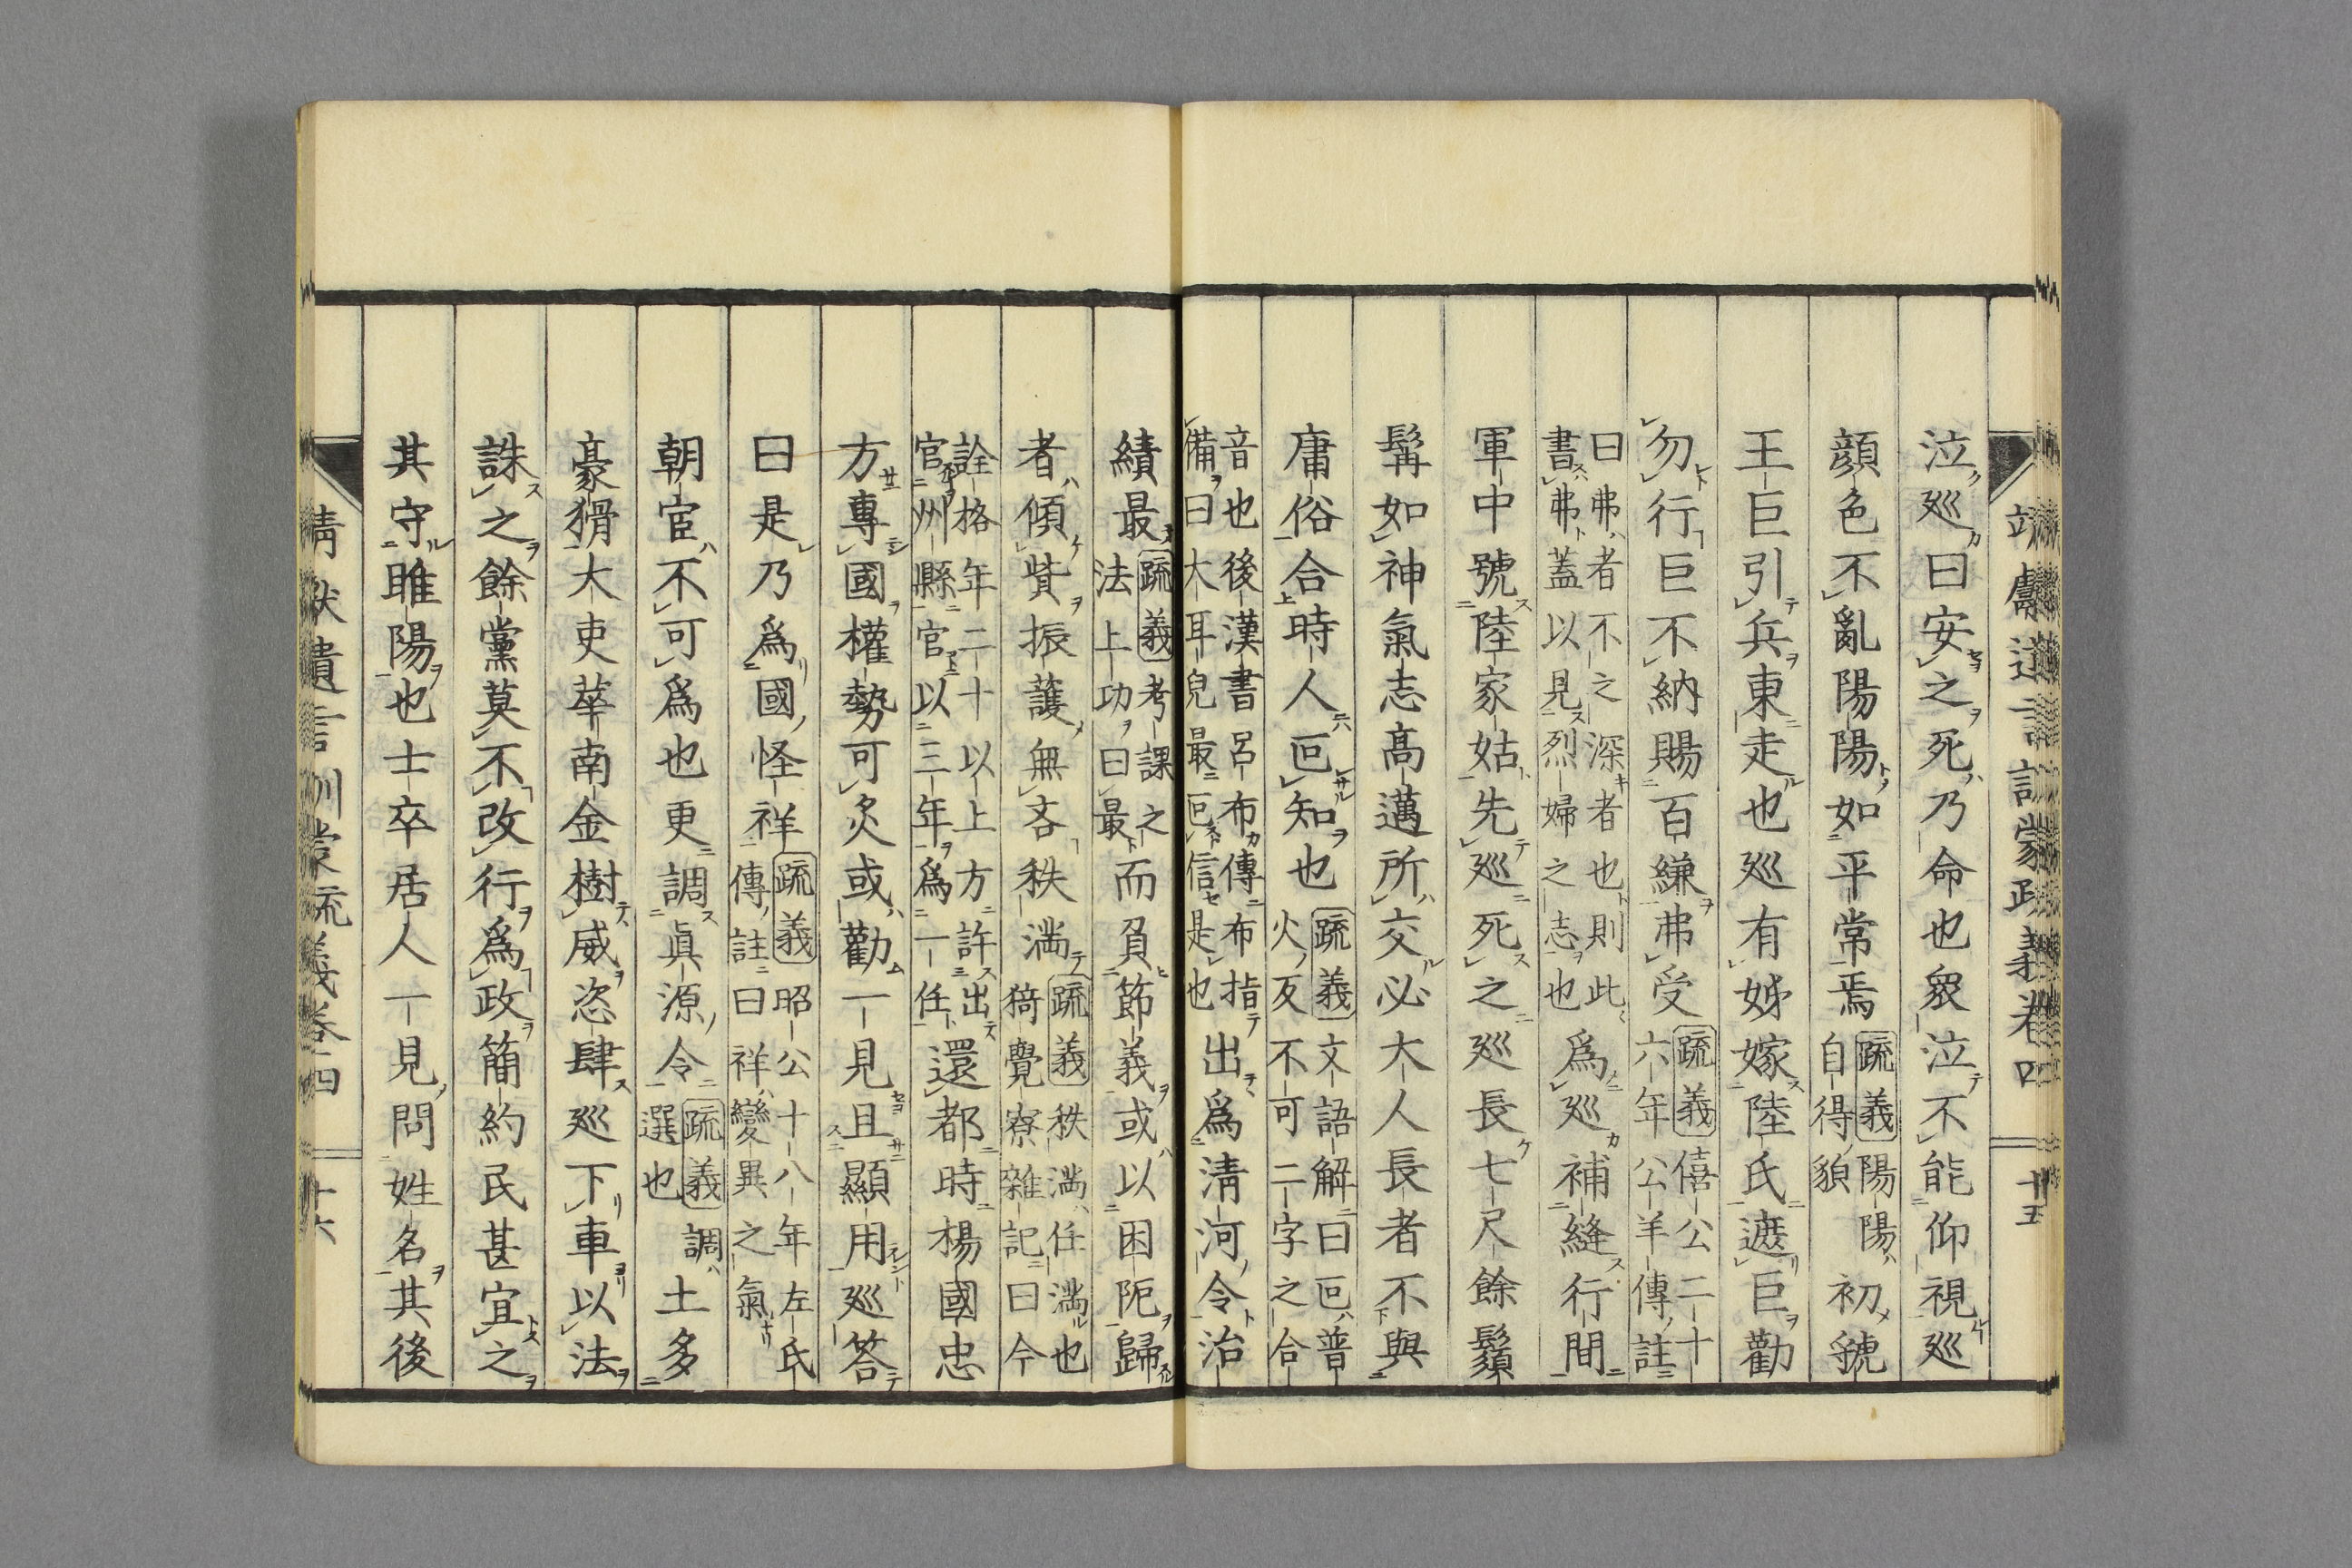 泣巡曰安之死乃命也衆泣不能仰視巡
顔色不亂陽陽如平常焉疏義陽陽
自得貌初虢
王巨引兵東走也巡有姊嫁陸氏遮巨勸
勿行巨不納賜百縑弗受疏義僖公二十
六年公羊傳註
曰弗者不之深者也則此
書弗蓋以見烈婦之志也爲巡補縫行間
軍中號陸家姑先巡死之巡長七尺餘鬚
髯如神氣志高邁所交必大人長者不與
庸俗合時人叵知也疏義文語解曰叵普
火反不可二字之合
音也後漢書呂布傳布指
備曰大耳兒最叵信是也出爲淸河令治
績最疏義考課之
法上功曰最而負節義或以困阨歸
者傾貲振護無吝秩滿疏義秩滿任滿也
猗覺寮雜記曰今
詮格年二十以上方許出
官州縣官以三年爲一任還都時楊國忠
方專國權勢可炙或勸一見且顯用巡答
曰是乃爲國怪祥疏義昭公十八年左氏
傳註曰祥變異之氣
朝宦不可爲也更調眞源令疏義調
選也土多
豪猾大吏華南金樹威恣肆巡下車以法
誅之餘黨莫不改行爲政簡約民甚宜之
其守睢陽也士卒居人一見問姓名其後
淸獻遺言訓蒙疏義卷四 十六